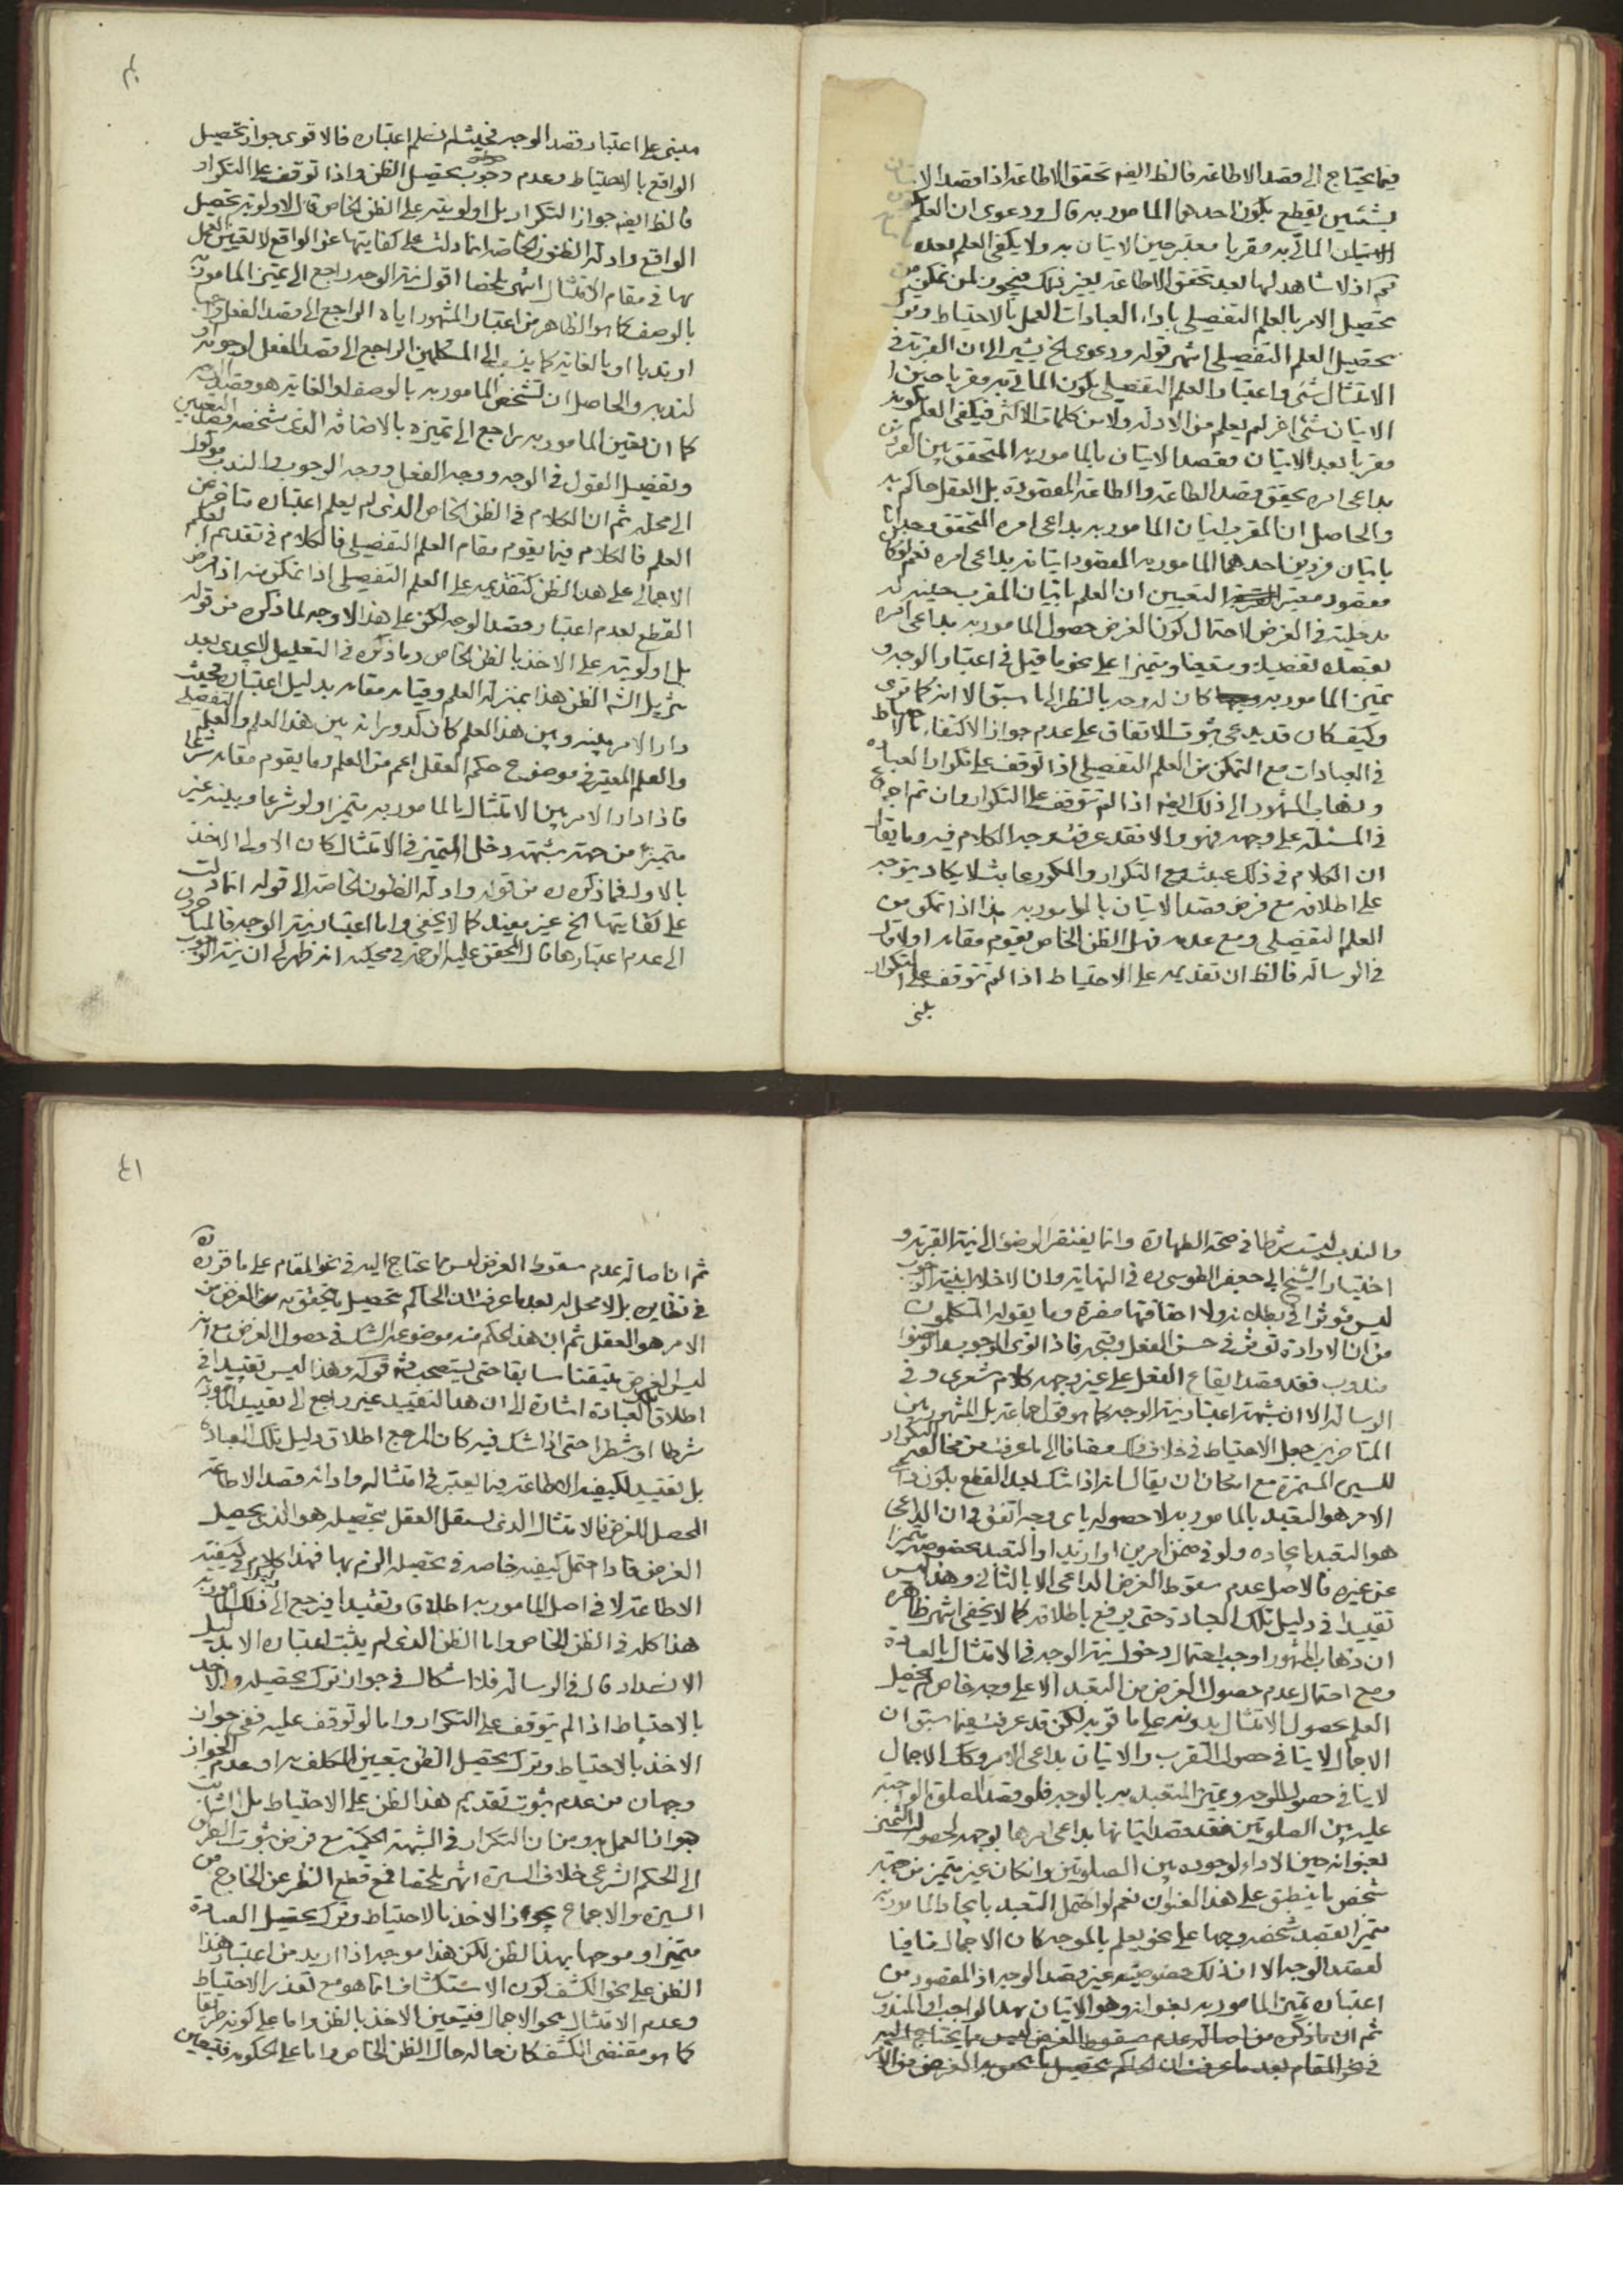 فيما يحتاج الى قصد الاطاعة فالظ ايضا تحقق الاطاعة اذا قصد الاتيان
بشيئين يقطع بكون احدهما المامور به قال ودعوى ان العلم
المأتى به مقربا معتبر حين الاتيان به ولا يكفى العلم بعده
تحكم اذ لا شاهد لها بعد تحقق الاطاعة بغير ذلك فيجوز لمن تمكن من
تحصيل الامر بالعلم التفصيلى باداء العبادات العمل بالاحتياط وترك
تحصيل العلم التفصيلى انتهى قوله ودعوى الخ يشير الى ان القربة فى
الامتثال شئى واعتبار العلم التفصيلى بكون المأتى به مقربا حين
الاتيان شئى اخر لم يعلم من الادلة ولا من كلمات الاكثر فيكفى العلم بكونه
مقربا بعد الاتيان فقصد الاتيان بالمامور به المتحقق بين الفردين
بداعى امره يحقق قصد الطاعة والطاعة المقصودة بل العقل حاكم به
والحاصل ان المقرب اتيان المامور به بداعى امره المتحقق
باتيان فردين احدهما المامور به المقصود اتيانه بداعى امره نعم لو كان
مقصود معتبر التعيين ان العلم باتيان المقرب حينه له
مدخلية فى الغرض لاحتمال كون الغرض حصول المامور به بداعى امره
بقصده تفصيلا ومتعينا ومتميزا على نحو ما قيل فى اعتبار الوجه و
تميز المامور به كان له وجه بالنظر الى ما سبق الا انه كما ترى
وكيف كان قد يدعى ثبوت الاتفاق على عدم جواز الاكتفاء بالاحتياط
فى العبادات مع التمكن من العلم التفصيلى اذا توقف على تكرار العبادة
وذهاب المشهور الى ذلك ايضا اذا لم تتوقف على التكرار وان تم اجماع
فى المسئلة على وجهه فهو والا فقد عرفت وجه الكلام فيه وما يقال
ان الكلام فى ذلك عبث مع التكرار والمكرر عابث لا يكاد يتوجه
على اطلاقه مع فرض قصد الاتيان بالمامور به هذا اذا تمكن من
العلم التفصيلى ومع عدمه فهل الظن الخاص يقوم مقامه اولا قال
فى الرسالة فالظ ان تقديمه على الاحتياط اذا لم تتوقف على التكرار
مبنى
٤٠
مبنى على اعتبار قصد الوجه فحيث لم نسلم اعتباره فالاقوى جواز تحصيل
الواقع بالاحتياط وعدم وجوب تحصيل الظن واذا توقف على التكرار
فالظ ايضا جواز التكرار بل اولويته على الظن الخاص قال لاولوية تحصيل
الواقع وادلة الظنون الخاصة انما دلت على كفايتها عن الواقع لا تعين العمل
بها فى مقام الامتثال انتهى ملخصا اقول نية الوجه راجع الى تميز المامور به
بالوصف كما هو الظاهر من اعتبار المشهور اياه الراجع الى قصد الفعل
او ندبا او بالغاية كما ينسب الى المتكلمين الراجع الى قصد الفعل لوجوبه او
لندبه والحاصل ان تشخص المامور به بالوصف او الغاية هو قصد الوجه
كما ان تعين المامور به راجع الى تميزه بالاضافة الذى تشخصه قصد التعيين
وتفصيل القول فى الوجه ووجه الفعل ووجه الوجوب والندب موكول
الى محله ثم ان الكلام فى الظن الخاص الذى لم يعلم اعتباره متاخر عن
العلم فالكلام فيما يقوم مقام العلم التفصيلى فالكلام فى تقديم العلم
الاجمالى على هذا الظن كتقديمه على العلم التفصيلى اذا تمكن منه اذا فرض
القطع بعدم اعتبار قصد الوجه لكن على هذا الاوجه لما ذكره من قوله
بل اولويته على الاخذ بالظن الخاص وما ذكره فى التعليل لا يجدى بعد
تنزيل الشارع الظن هذا بمنزلة العلم وقيامه مقامه بدليل اعتباره فحيث
دار الامر بينه وبين هذا العلم كان كدورانه بين هذا العلم والعلم التفصيلى
والعلم المعتبر فى موضوع حكم العقل اعم من العلم وما يقوم مقامه شرعا
فاذا دار الامر بين الامتثال بالمامور به متميزا ولو شرعا وبينه غير
متميز من جهة شبهة دخل التميز فى الامتثال كان الاولى الاخذ
بالاول فما ذكره ره من قوله وادلة الظنون الخاصة الى قوله انما دلت
على كفايتها الخ غير مفيد كما لا يخفى واما اعتبار نية الوجه
الى عدم اعتبارها قال المحقق عليه الرحمة فى محكيه انه ظهر لى ان نية الوجوب
والندب ليست شرطا فى صحة الطهارة وانما يفتقر الوضوء الى نية القربة و
اختيار الشيخ ابى جعفر الطوسى ره فى النهاية وان الاخلال بنية الوجوب
ليس مؤثرا فى بطلانه ولا اضافتها مضرة وما يقوله المتكلمون
من ان الارادة تؤثر فى حسن الفعل وقبحه فاذا نوى الوجوب والوضوء
مندوب فقد قصد ايقاع الفعل على غير وجهه كلام شعرى وفى
الرسالة الا ان شبهة اعتبار نية الوجه كما هو قول جماعة بل المشهور بين
المتاخرين جعل الاحتياط فى خلاف ذلك مضافا الى ما عرفت من مخالفة التكرار
للسيرة المستمرة مع امكان ان يقال انه اذا شك بعد القطع بكون داعى
الامر هو التعبد بالمامور به لا حصوله باى وجه اتفق فى ان الداعى
هو التعبد بايجاده ولو فى ضمن امرين او ازيد او التعبد بخصوصه متميزا
عن غيره فالاصل عدم سقوط الغرض الداعى الا بالثانى وهذا ليس
تقييدا فى دليل تلك العبادة حتى يرفع باطلاقه كما لا يخفى انتهى ظاهره
ان ذهاب المشهور اوجب احتمال دخول نية الوجه فى الامتثال بالعبادة
ومع احتمال عدم حصول الغرض من التعبد الا على وجه خاص لم يحصل
العلم بحصول الامتثال بدونه على ما قربه لكن قد عرفت فيما سبق ان
الاجمال لا ينافى حصول التقرب والاتيان بداعى الامر وكذلك الاجمال
لا ينافى حصول الوجه وتميز المتعبد به بالوجه فلو قصد الصلوة الواجبة
عليه بين الصلوتين فقد قصد اتيانها بداعى امرها بوجهه لحصول التميز
بعنوانه حين الاداء لوجوده بين الصلوتين وان كان غير متميز من جهة
شخص ما ينطبق على هذا العنوان نعم لو احتمل التعبد بايجاد المامور به
متميزا بقصد شخصه وجها على نحو يعلم بالموجه كان الاجمال منافيا
لقصد الوجه الا ان ذلك خصوصية غير قصد الوجه اذ المقصود من
اعتباره تميز المامور به بعنوانه وهو الاتيان بهذا الواجب او المندوب
ثم ان ما ذكره من اصالة عدم سقوط الغرض ليس مما يحتاج اليه
فى نحو المقام بعد ما عرفت ان الحاكم بتحصيل ما يحصل به الغرض من الامر
٤١
ثم ان اصالة عدم سقوط الغرض ليس مما يحتاج اليه فى نحو المقام على ما قرره ره
فى نظايره بل لا محل له بعد ما عرفت ان الحاكم بتحصيل ما يتحقق به الغرض من
الامر هو العقل ثم ان هذا الحكم منه موضوعه الشك فى حصول الغرض مع انه
ليس الغرض متيقنا سابقا حتى يستصحب ثم قوله وهذا ليس تقييدا فى
اطلاق تلك العبادة اشارة الى ان هذا التقييد غير راجع الى تقييد المامور به
شرطا او شطرا حتى اذا شك فيه كان المرجع اطلاق دليل تلك العبادة
بل تقييد لكيفية الاطاعة فيما يعتبر فى امتثاله وادائه قصد الاطاعة
المحصل للغرض فالامتثال الذى يستقل العقل بتحصيله هو الذى يحصل
الغرض فاذا احتمل كيفية خاصة فى تحصيله الزم بها فهذا كلام فى كيفية
الاطاعة لا فى اصل المامور به اطلاقا وتقييدا فيرجع الى ذلك
هذا كله فى الظن الخاص واما الظن الذى لم يثبت اعتباره الا بدليل
الانسداد قال فى الرسالة فلا اشكال فى جواز ترك تحصيله والاخذ
بالاحتياط اذا لم يتوقف على التكرار واما لو توقف عليه ففى جواز
الاخذ بالاحتياط وترك تحصيل الظن بتعيين المكلف به او عدم الجواز
وجهان من عدم ثبوت تقديم هذا الظن على الاحتياط بل الثابت
جواز العمل به ومن ان التكرار فى الشبهة الحكمية مع فرض ثبوت الطريق
الى الحكم الشرعى خلاف السيرة انتهى ملخصا فمع قطع النظر عن الخارج من
السيرة والاجماع يجوز الاخذ بالاحتياط وترك تحصيل العبادة
متميزا وموجها بهذا الظن لكن هذا موجه اذا اريد من اعتبار هذا
الظن على نحو الكشف كون الاستكشاف انما هو مع تعذر الاحتياط
وعدم الامتثال بنحو الاجمال فيتعين الاخذ بالظن واما على كونه طريقا
كما هو مقتضى الكشف كان حاله حال الظن الخاص واما على الحكومة فيتعين